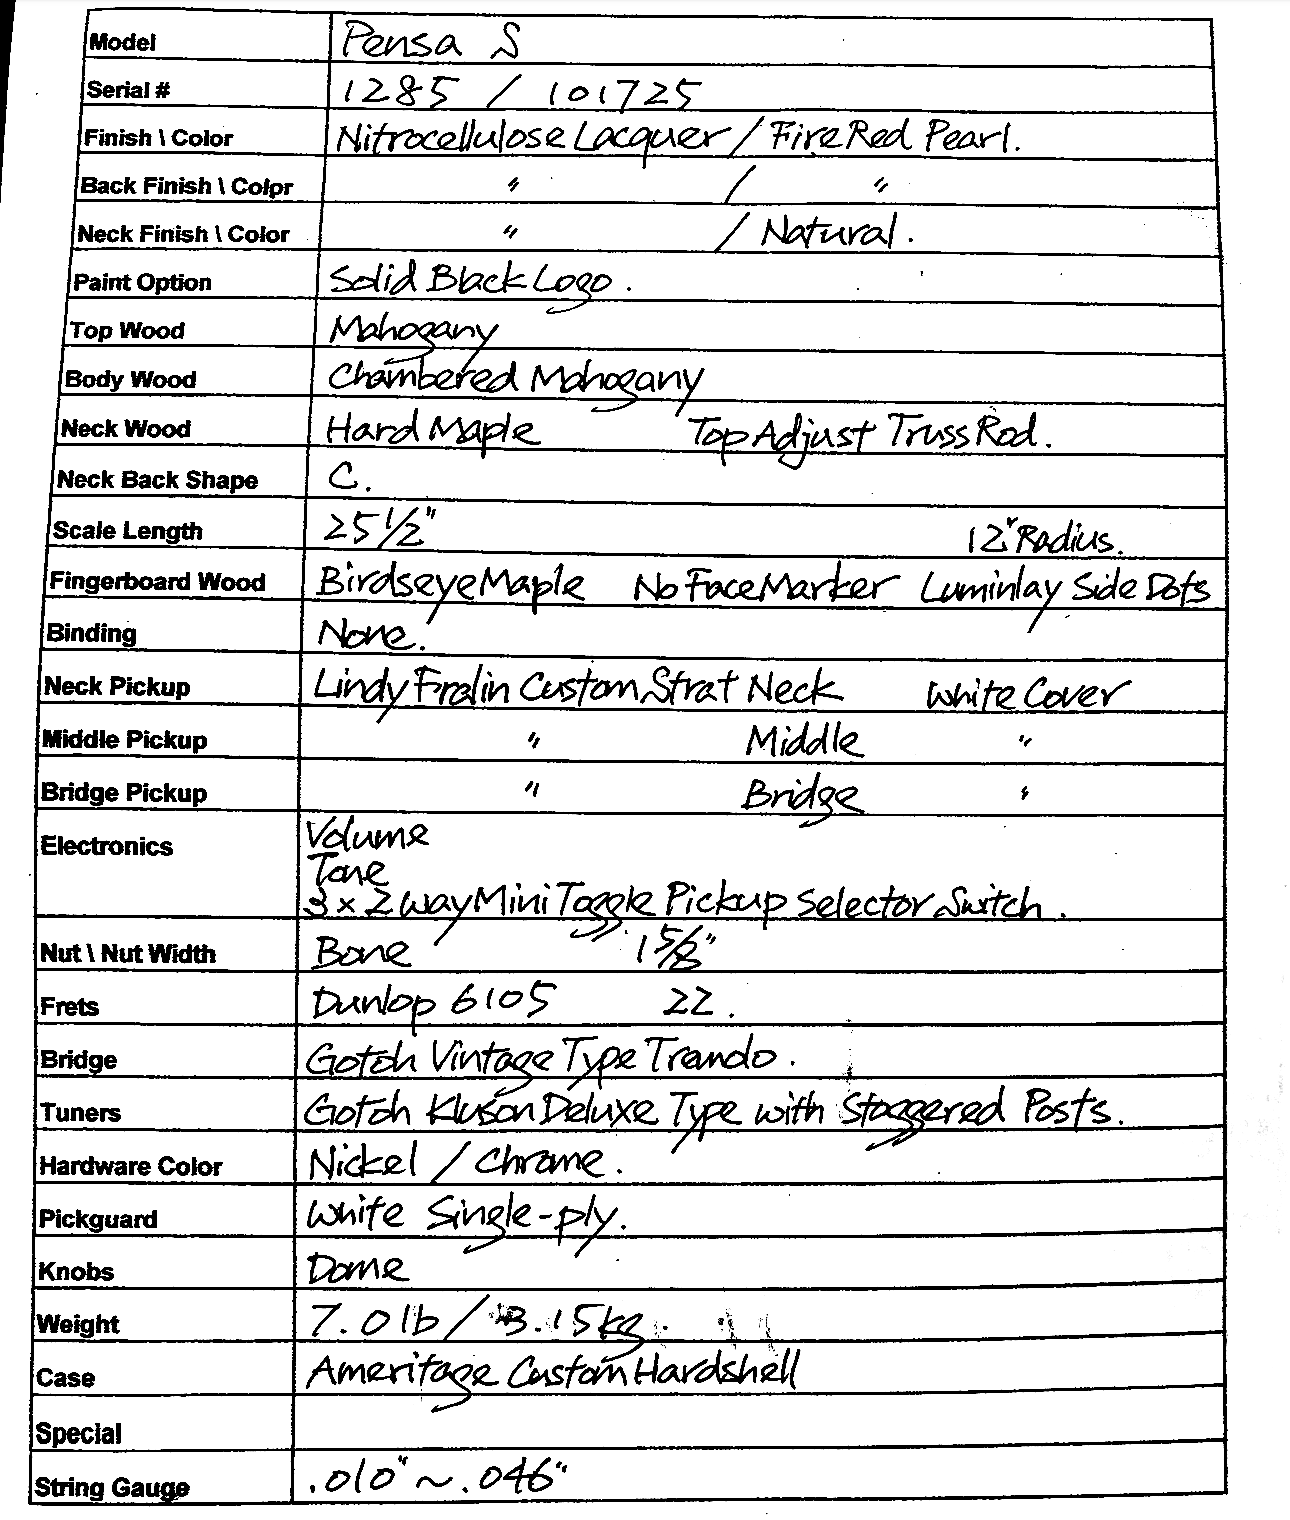 Model Pensa S
Serial # 1285 / 101725
Finish \ Color Nitrocellulose Lacquer / Fire Red Pearl.
Back Finish \ Color " / "
Neck Finish \ Color " / Natural.
Paint Option Solid Black Logo.
Top Wood Mahogany
Body Wood Chambered Mahogany
Neck Wood Hard Maple Top Adjust Truss Rod.
Neck Back Shape C.
Scale Length 25 1/2" 12" Radius.
Fingerboard Wood Birdseye Maple No Face Marker Luminlay Side Dots
Binding None.
Neck Pickup Lindy Fralin Custom Strat Neck White Cover
Middle Pickup " Middle "
Bridge Pickup " Bridge "
Electronics Volume
Tone
3 x 2 way Mini Toggle Pickup Selector Switch.
Nut \ Nut Width Bone 1 5/8"
Frets Dunlop 6105 22.
Bridge Gotoh Vintage Type Tremolo.
Tuners Gotoh Kluson Deluxe Type with Staggered Posts.
Hardware Color Nickel / Chrome.
Pickguard White Single-ply.
Knobs Dome
Weight 7.0 lb / 3.15 kg.
Case Ameritage Custom Hardshell
Special
String Gauge .010" ~ .046"